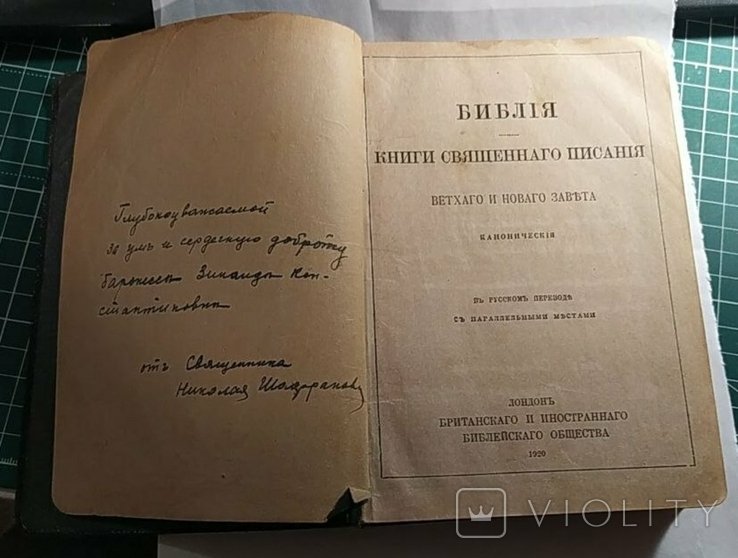 Глубокоуважаемой
за умъ и сердечную доброту
баронессы Зинаиды Кон-
стантиновны
отъ Священника
Николая
БИБЛІЯ
КНИГИ СВЯЩЕННАГО ПИСАНІЯ
ВЕТХАГО И НОВАГО ЗАВѢТА
КАНОНИЧЕСКІЯ
ВЪ РУССКОМЪ ПЕРЕВОДѢ
СЪ ПАРАЛЛЕЛЬНЫМИ МѢСТАМИ
ЛОНДОНЪ
БРИТАНСКАГО И ИНОСТРАННАГО
БИБЛЕЙСКАГО ОБЩЕСТВА
1920
VIOLITY